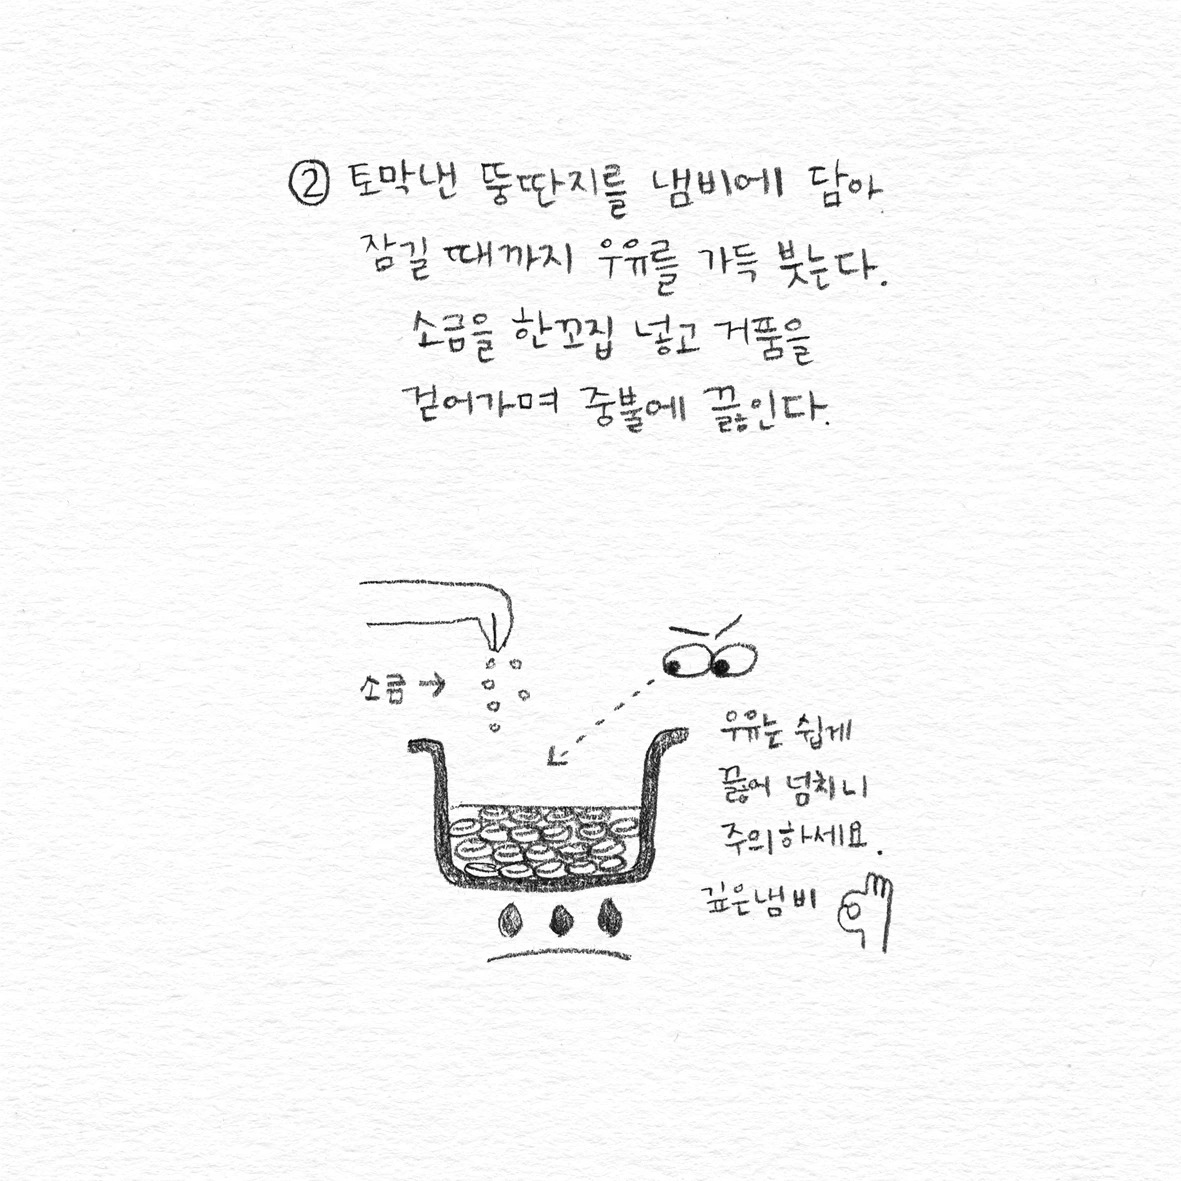 ② 토막낸 뚱딴지를 냄비에 담아
잠길 때까지 우유를 가득 붓는다.
소금을 한꼬집 넣고 거품을
걷어가며 중불에 끓인다.
소금 →
우유는 쉽게
끓어 넘치니
주의하세요.
깊은냄비